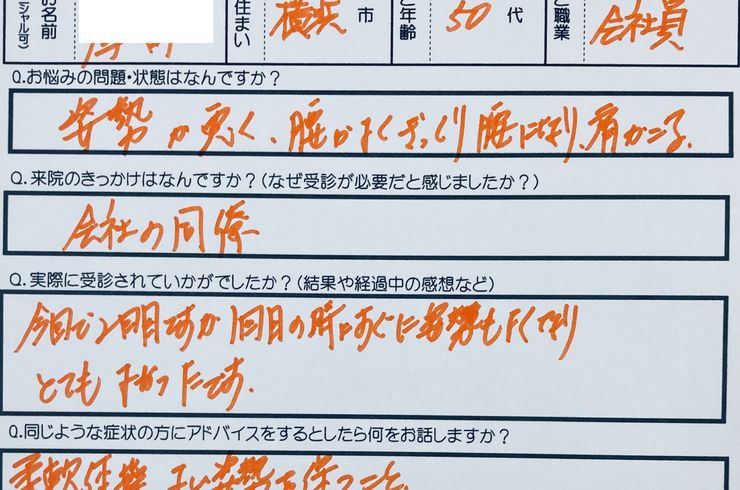 お名前
シャル可)
住まい
横浜 市
と年齢
50 代
と職業
会社員
Q.お悩みの問題・状態はなんですか?
姿勢が悪く、腰がよくぎっくり腰になり、肩がこる。
Q.来院のきっかけはなんですか?(なぜ受診が必要だと感じましたか?)
会社の同僚
Q.実際に受診されていかがでしたか?(結果や経過中の感想など)
今日で2回目ですが1回目の時にすぐに姿勢もよくなり
とてもよかったです。
Q.同じような症状の方にアドバイスをするとしたら何をお話しますか?
柔軟体操 よい姿勢を保つこと